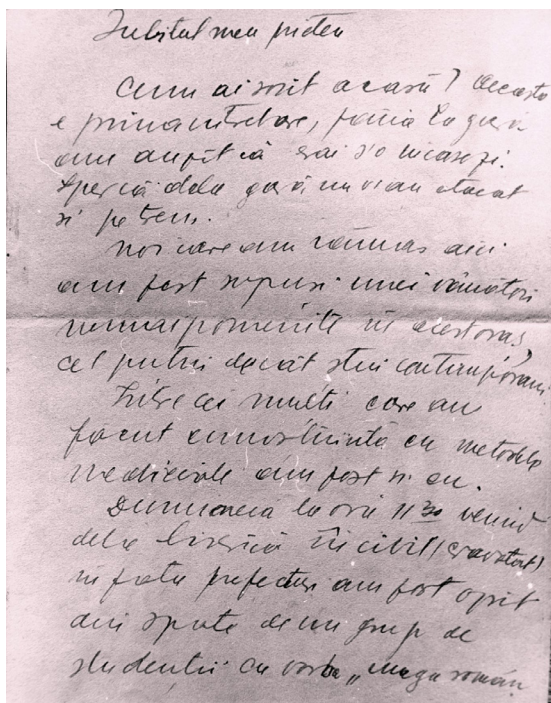 Iubitul meu prieten
Cum ai sosit acasă? Aceasta
e prima întrebare, până la gară
am auzit că erai s'o încasezi.
Sper că dela gară nu v'au atacat
și pe tren.
Noi care am rămas aici
am fost supuși unei vânători
nemaipomenite în acest oraș,
cel puțin decât știu contemporanii.
Între cei mulți care au
făcut cunoștiință cu metodele
medievale am fost și eu.
Dumineca la ora 11 30 venind
dela biserică în civil (cravatat)
în fața prefecturi am fost oprit
din spate de un grup de
studenți cu vorba „